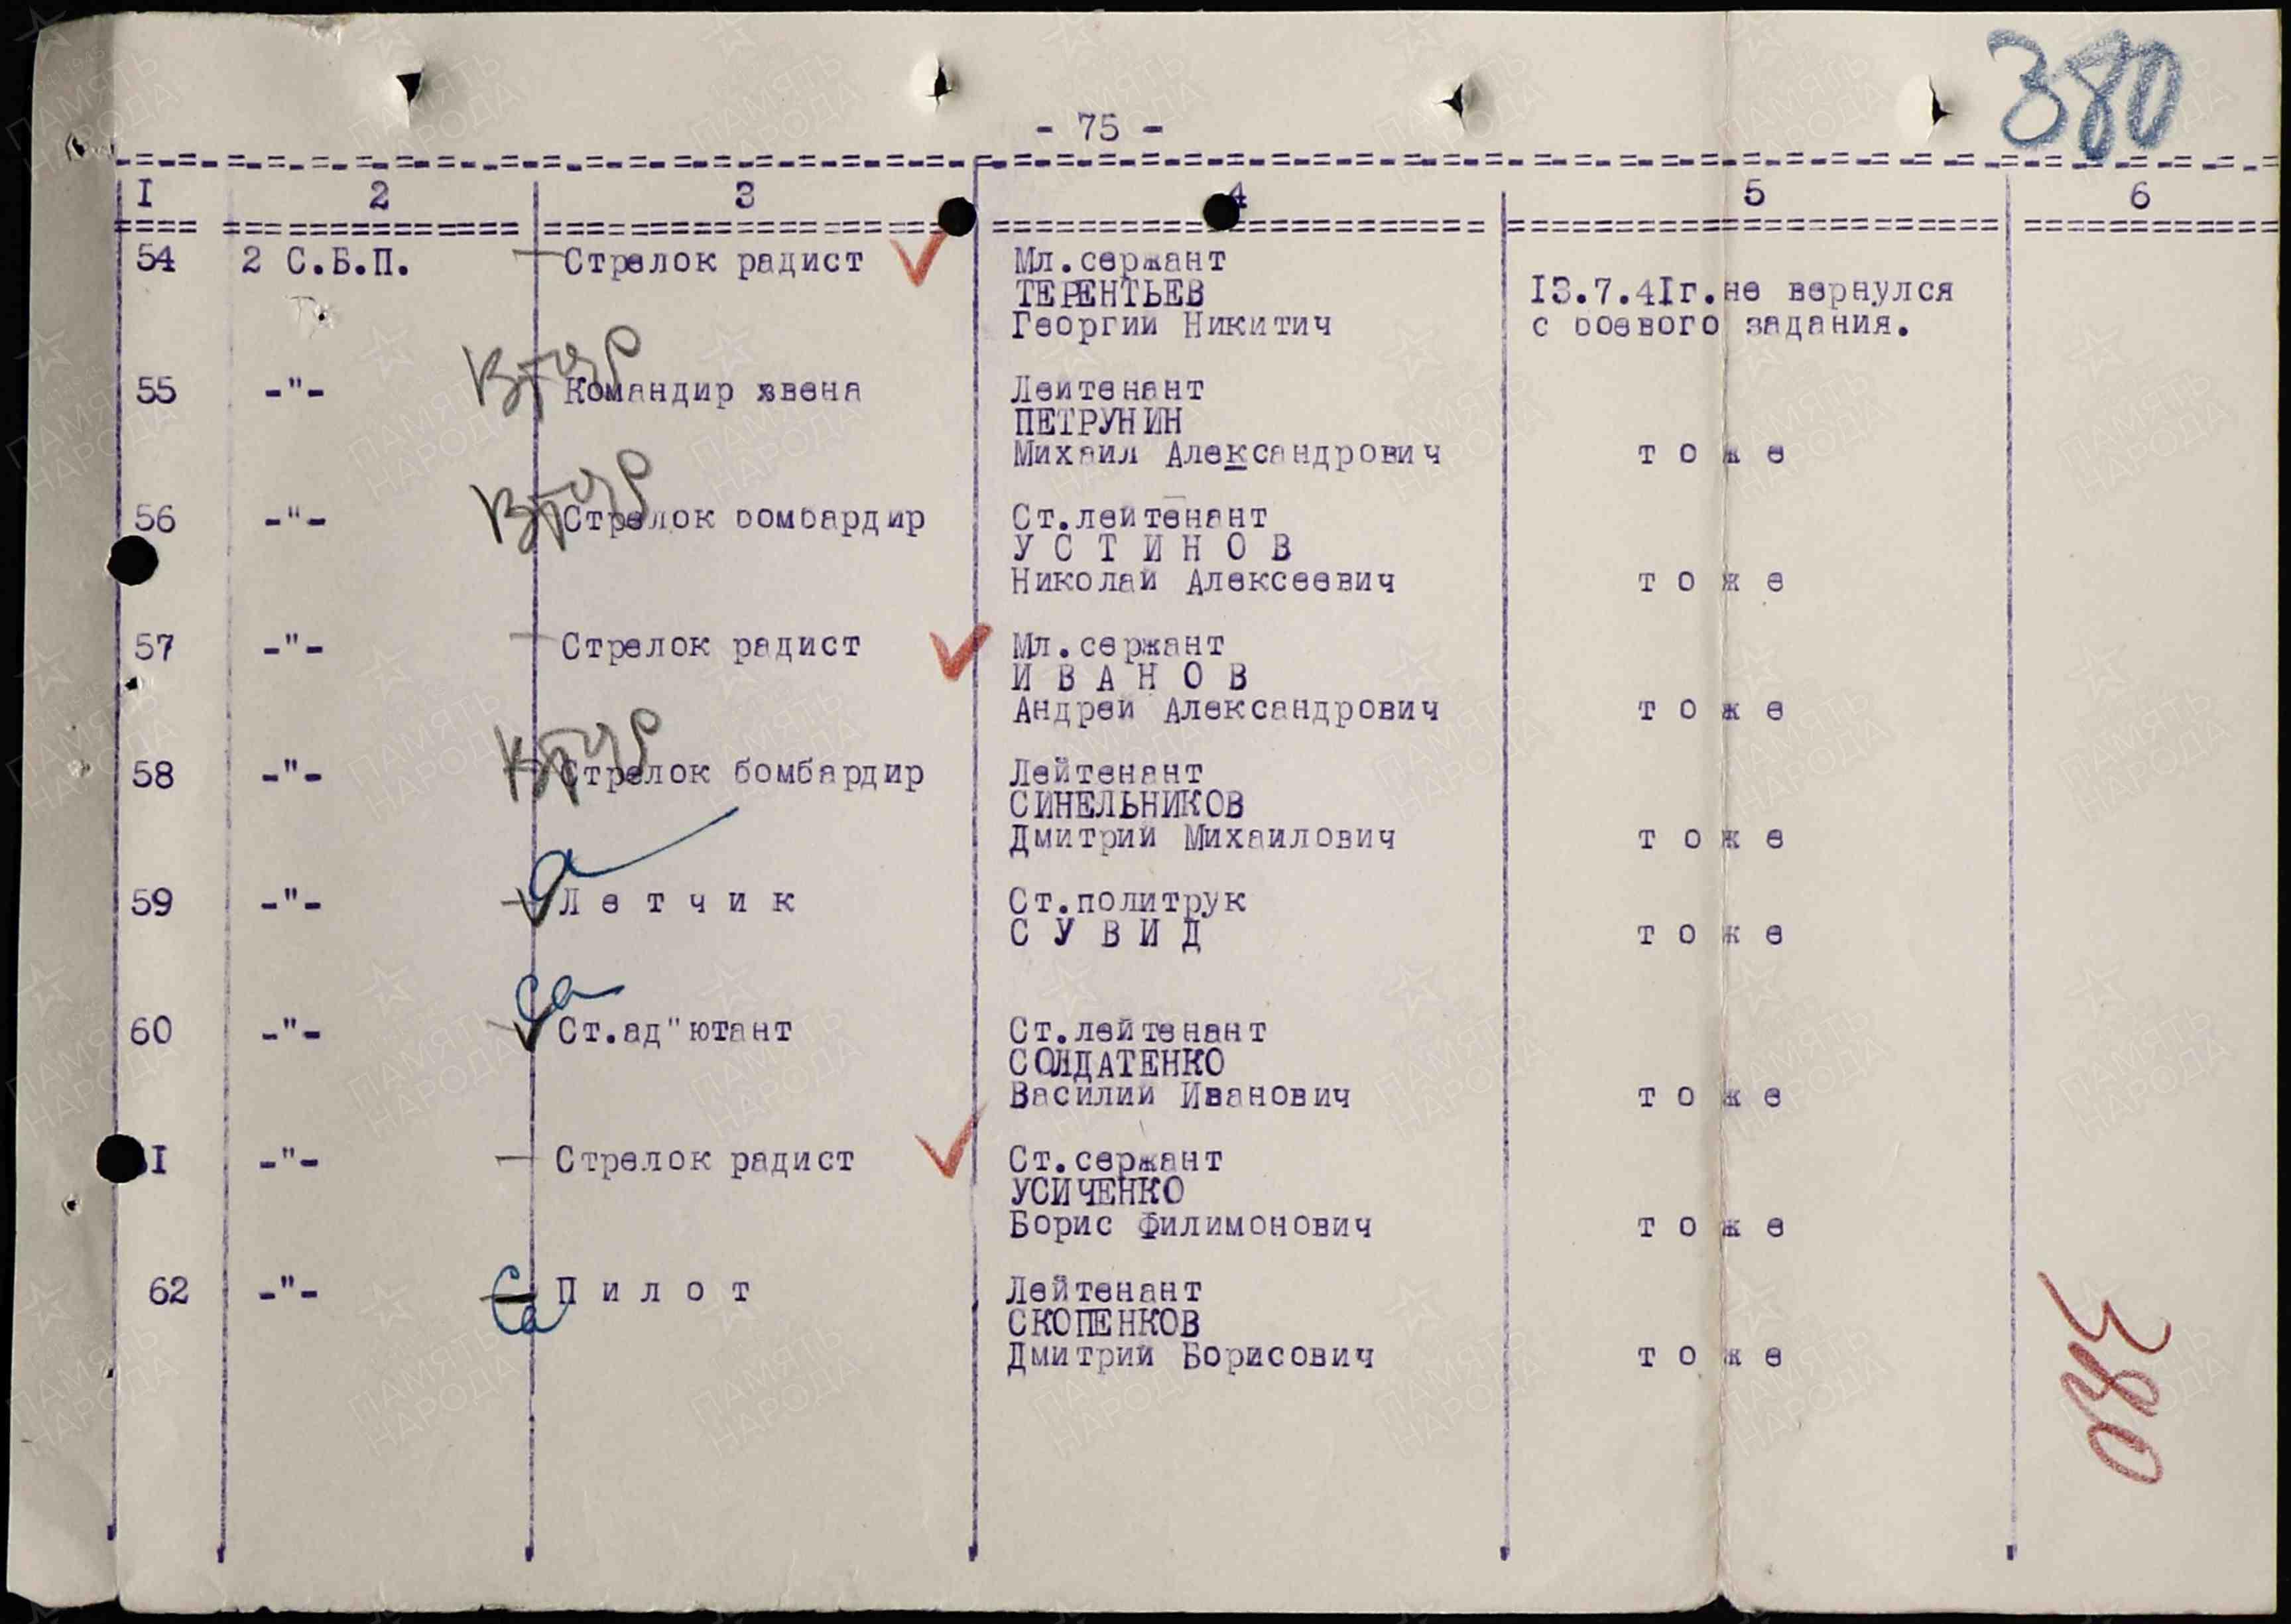 380
- 75 -
I 2 3 4 5 6
54 2 С.Б.П. Стрелок радист Мл.сержант
ТЕРЕНТЬЕВ 13.7.41г.не вернулся
Георгий Никитич с боевого задания.
55 -"- Командир звена Лейтенант
ПЕТРУНИН
Михаил Александрович т о ж е
56 -"- Стрелок бомбардир Ст.лейтенант
У С Т И Н О В
Николай Алексеевич т о ж е
57 -"- Стрелок радист Мл.сержант
И В А Н О В
Андрей Александрович т о ж е
58 -"- Стрелок бомбардир Лейтенант
СИНЕЛЬНИКОВ
Дмитрий Михайлович т о ж е
59 -"- Л е т ч и к Ст.политрук
С У В И Д т о ж е
60 -"- Ст.ад"ютант Ст.лейтенант
СОЛДАТЕНКО
Василий Иванович т о ж е
I -"- Стрелок радист Ст.сержант
УСИЧЕНКО
Борис Филимонович т о ж е
62 -"- П и л о т Лейтенант
СКОПЕНКОВ
Дмитрий Борисович т о ж е
380
ПАМЯТЬ НАРОДА